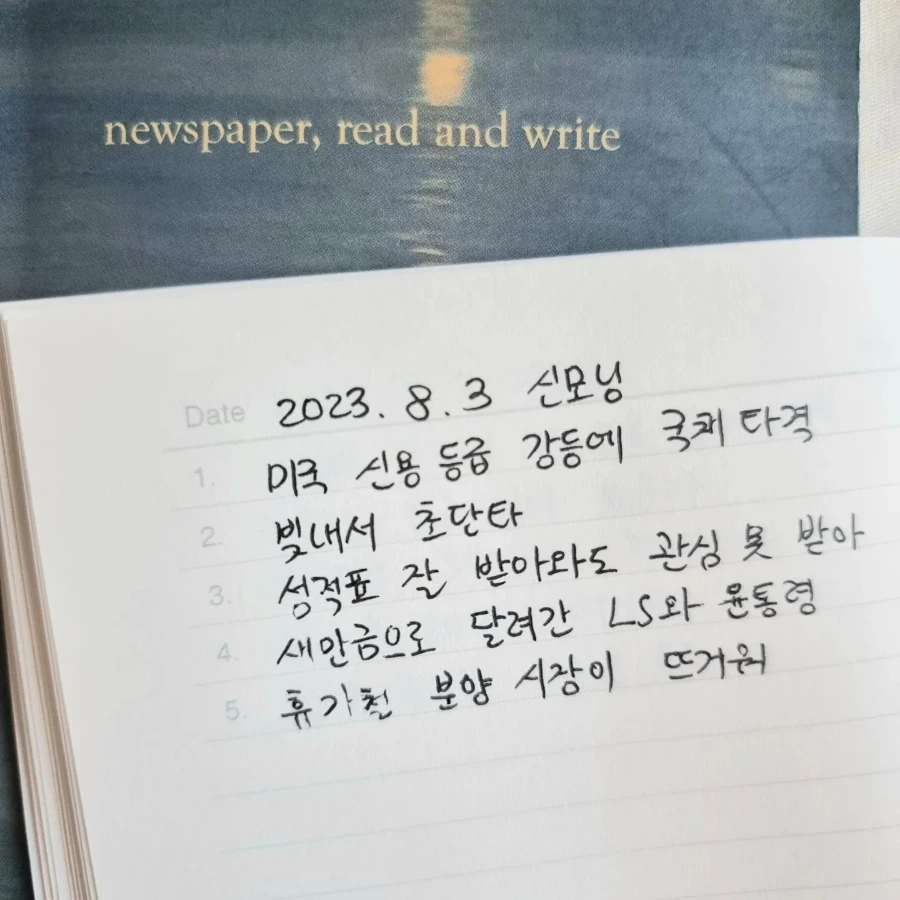 newspaper, read and write
Date 2023. 8. 3 신모닝
1. 미국 신용 등급 강등에 국채 타격
2. 빚내서 초단타
3. 성적표 잘 받아와도 관심 못 받아
4. 새만금으로 달려간 LS와 윤통령
5. 휴가철 분양 시장이 뜨거워